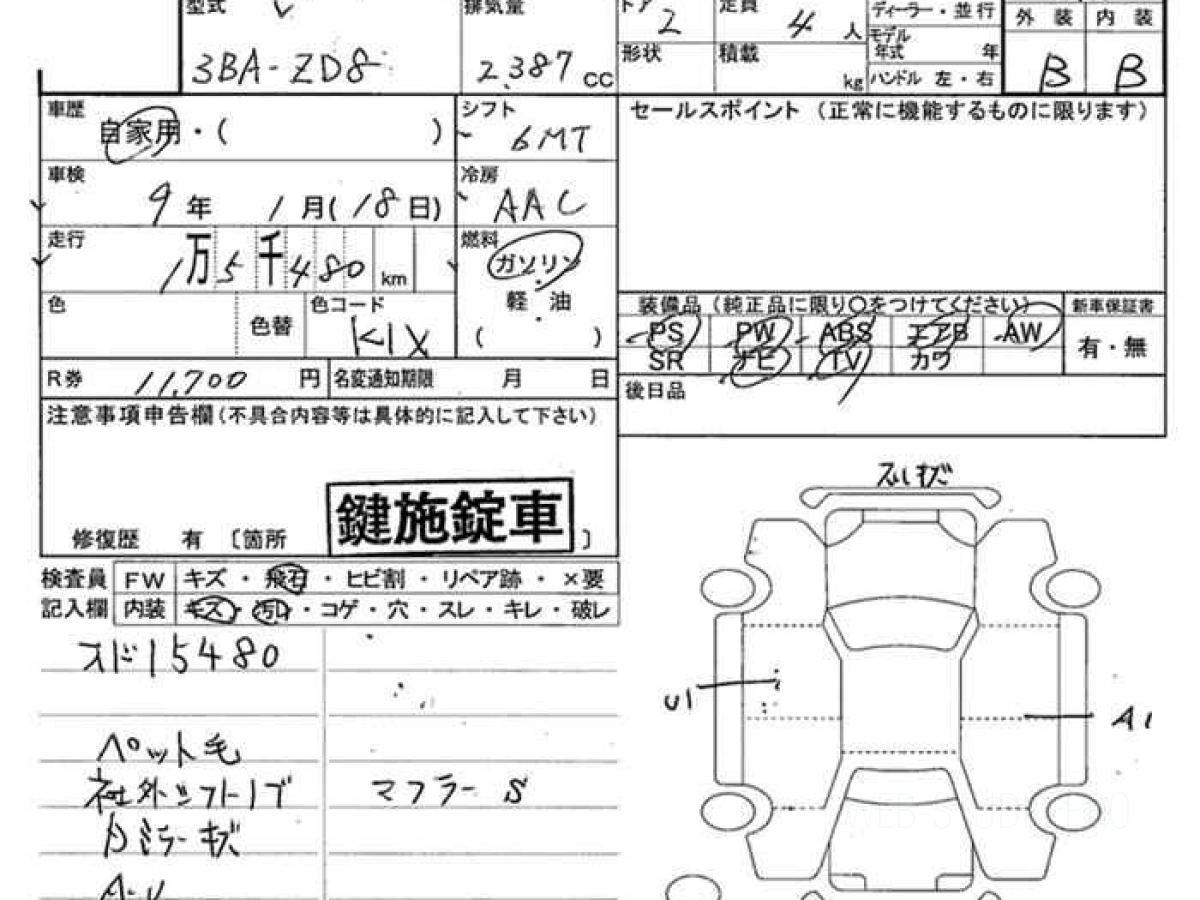 型式 排気量 ドア 2 定員 4 人 ディーラー・並行 外装 内装
3BA-ZD8 2,387 cc 形状 積載 kg モデル年式 年 B B
ハンドル 左・右
車歴 自家用・( ) シフト 6MT セールスポイント (正常に機能するものに限ります)
車検 9年 1月(18日) 冷房 AAC
走行 1万5千480 km 燃料 ガソリン
軽油
( )
色 色替 色コード K1X
装備品 (純正品に限り○をつけてください) 新車保証書
PS PW ABS エアB AW 有・無
SR ナビ TV カワ
R券 11,700 円 名変通知期限 月 日 後日品
注意事項申告欄(不具合内容等は具体的に記入して下さい)
鍵施錠車
修復歴 有 〔箇所 〕
検査員 FW キズ・飛石・ヒビ割・リペア跡・×要
記入欄 内装 キズ・汚れ・コゲ・穴・スレ・キレ・破レ
スド15480
ペット毛
社外シフトノブ マフラーS
ミラーキズ
U1
A1